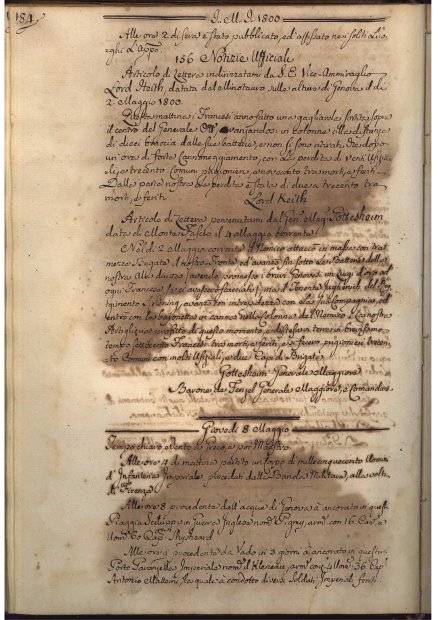 184
I. M. I. 1800
Alle ore 2 di sera è stato pubblicato, ed affissato nei soliti Luo-
ghi L'Appo.
156 Notizie Ufficiali
Articolo di Lettera indirizzatami da S. E. Vice-Ammiraglio
Lord Keith, datata dal Minotauro sulle alture di Genova il dì
2. Maggio 1800.
Questa mattina i Francesi anno fatto una gagliarda sortita sopra
il centro del Generale Ott avanzandosi in Colonne alla distanza
di dieci braccia dalle sue batterie, e non si sono ritirati che dopo
un'ora di forte Cannoneggiamento, con la perdita di venti Uffizia-
li, e trecento Comuni prigionieri, ed tra morti, e feriti.
Dalla parte nostra la perdita è stata di due a trecento tra
morti, e feriti. Lord Keith
Articolo di Lettera pervenutami dal Gen. Magg. Gottesheim
data di Monte Falcho il 4 Maggio corrente.
il 2 Maggio corrente il Nemico attaccò in massa con tre
mezze Brigate il nostro Fronte ed avanzò fin sotto la Batteria della
nostra Ala diritta
ogni Francese, ma il Tenente del Reg-
gimento avanzò con intrepidezza con la sua Compagnia, ed
entrò con la bajonetta in canna nella Colonna del Nemico. La nostra
Artiglieria profittò di questo momento, e distese in terra in brevissimo
tempo settecento Francesi tra morti, e feriti, e si fecero prigionieri trecen-
to Comuni con molti Uffiziali, e due Capi di Brigata.
Gottesheim Generale Maggiore
Barone de Fenzel Generale Maggiore, e Comandan.
Giovedì 8 Maggio
Tempo chiaro, e Vento da Greco, e poi Maestro
Alle ore 4 di mattina partito un Corpo di millecinquecento Uomini
d'Infanteria Imperiale, preceduti dalla Banda Militare, alla volta
di Firenze
Alle ore 8 procedente dall'acque di Genova è ancorato in questa
Spiaggia Sciluppo in Guerra Inglese nom. Pigmy, arm. con 16. Can. e
Uom. 60 Cap. Shepheard
Alle ore 9 procedente da Vado in 3 giorni è ancorato in questo
Porto Imperiale nom. il Klenau, arm. con 4 Uom. 36 Cap.
Antonio Mattarini, la quale à condotto diversi Soldati Imperiali feriti.